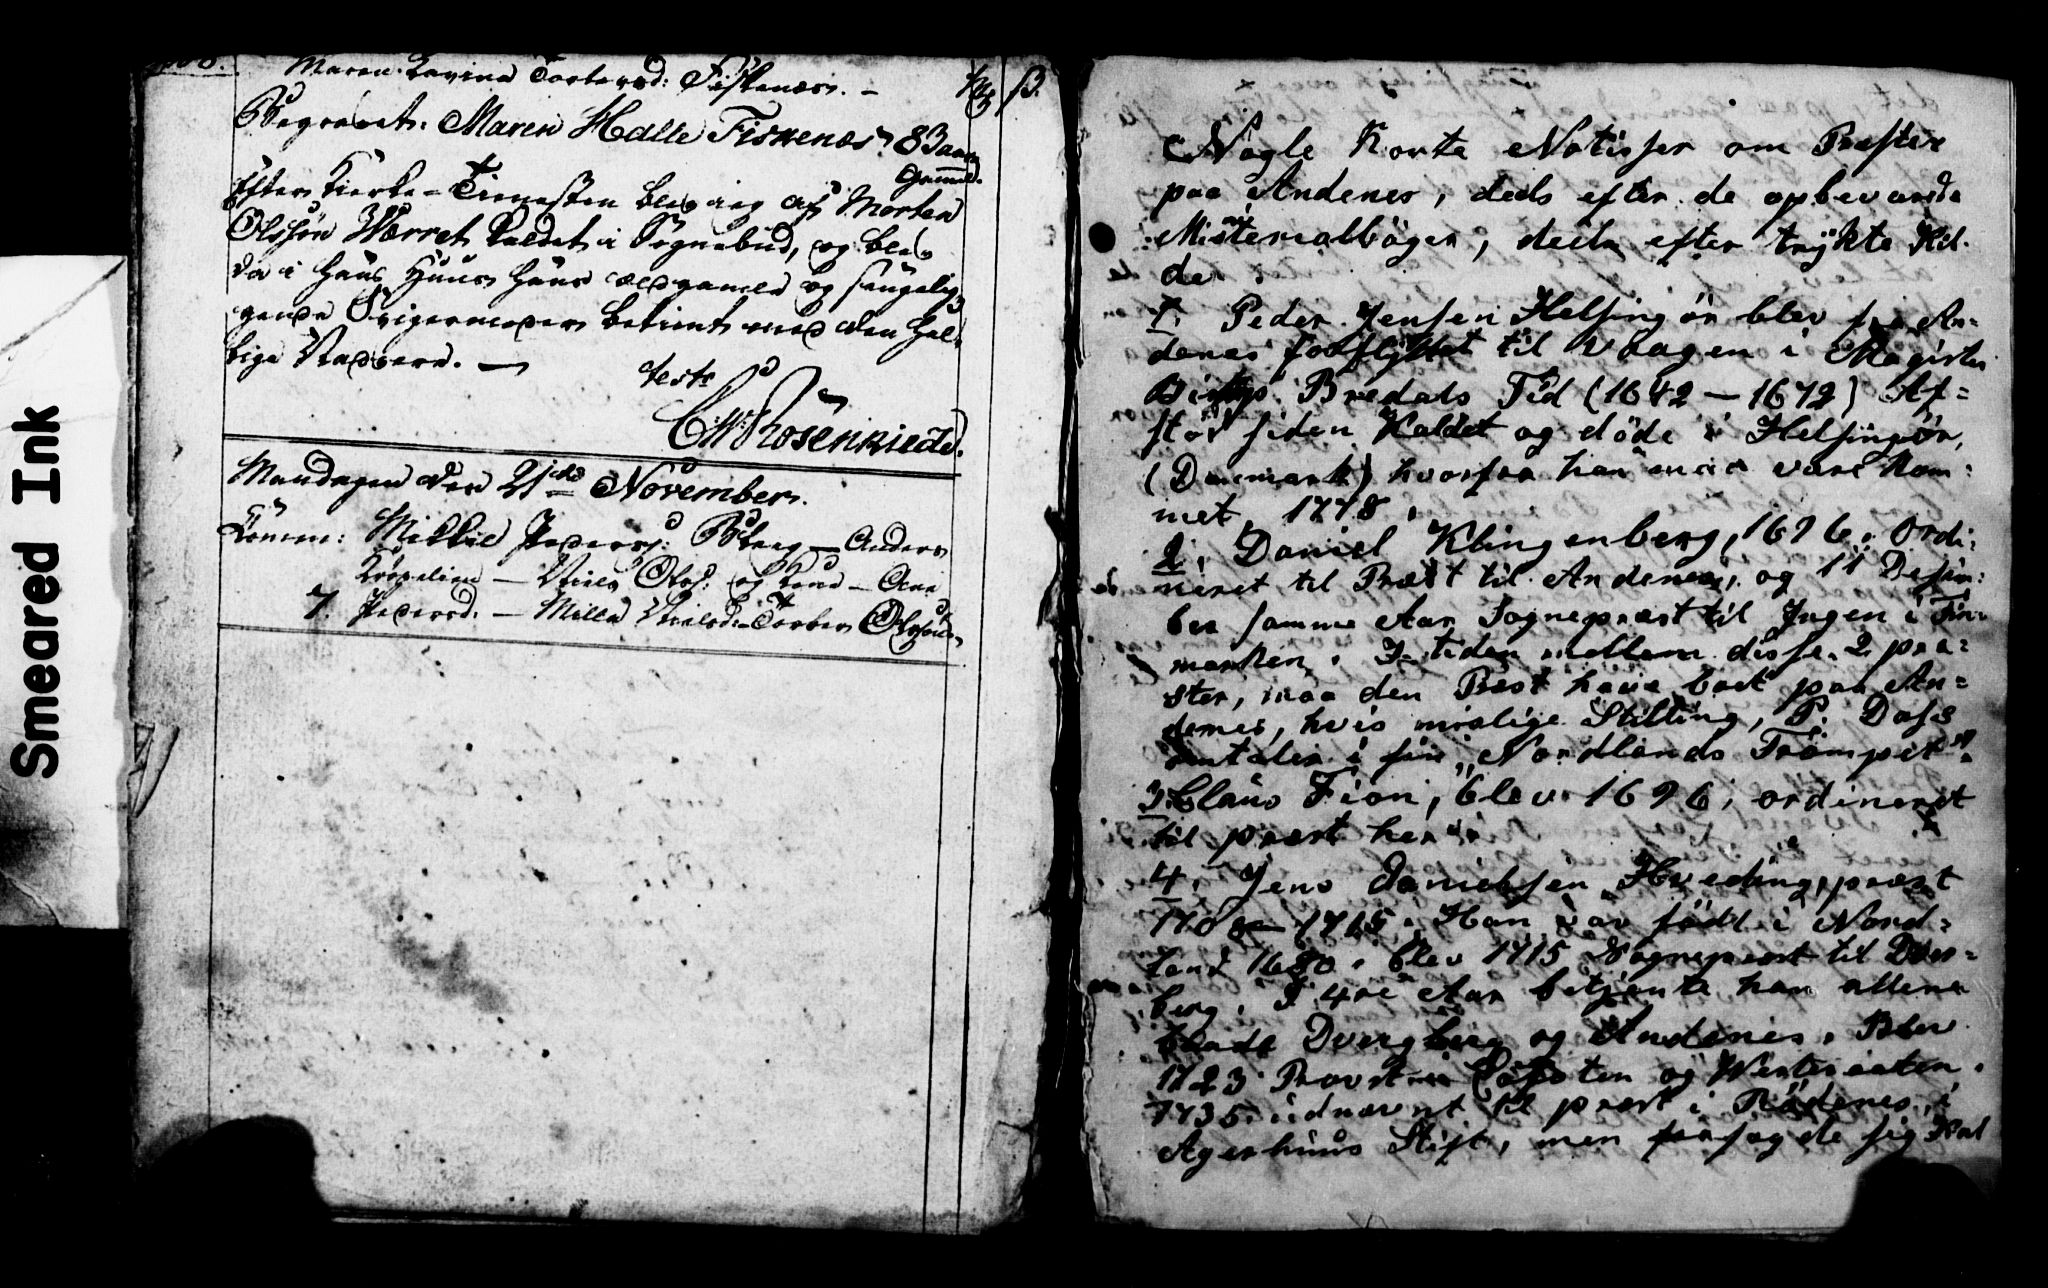 Smeared Ink
Maren Torbersd: Fiskenæs. –
Begravet. Maren Halle Fiskenæs 83 aar
Gammel.
Efter Kierke-Tienesten blev ieg af Morten
Olssøn Værret kaldet i Sognebud, og blev
da i hans Huus hans og sengelig-
gende Svigermoder betient med den hel-
lige Nadverd. –
test:
Rosenkilde.
Mandagen den 21de November.
Comm: Mikkel Peders: – Anders
– Niels Ols: og Kone – Ane
7. Pedersd: – Mille Nielsd: – Torber Olssøn
Nogle korte Notisser om Præster
paa Andenes, dels efter de opbevarede
Ministerialbøger, dels efter trykte Kil-
de
1. Peder Jensen Helsingør blev fra An-
denes forflyttet til Vaagen i Magister
Bisp Bredals Tid (1642 – 1672) Af-
stod siden Kaldet og døde i Helsingør,
(Danmark) hvorfra han maa være kom-
met 1778.
2. Daniel Klingenberg, 1696. Ordi-
neret til Præst til Andenes, og 11 Desem-
ber samme Aar Sognepræst til Ingen i Fin-
marken. I tiden mellem disse 2 præ-
ster, maa den Præst have boet paa An-
denes, hvis mislige Stilling, P. Dass
omtaler i sin „Nordlands Trompet“.
3. Claus Fion, blev 1696, ordineret
til præst her
4. Jens Danielsen Hveding, præst
1708 – 1715. Han var født i Nord-
land 1680. blev 1715 Sognepræst til Dver-
berg. I 4re Aar betjente han allene
baade Dvergberg og Andenes. Blev
1723 Provst i Lofoten og Vesteraalen.
1735 udnævnt til præst i Rødenes i
Agerhuus Stift, men frasagde sig Kal